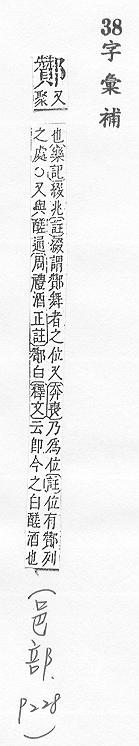 38字彙補
酇 又聚
也樂記綴兆註綴謂酇舞者之位又奔喪乃為位註位有酇列
之處○又與醝通周禮酒正註酇白釋文云即今之白醝酒也
(邑部.P228)